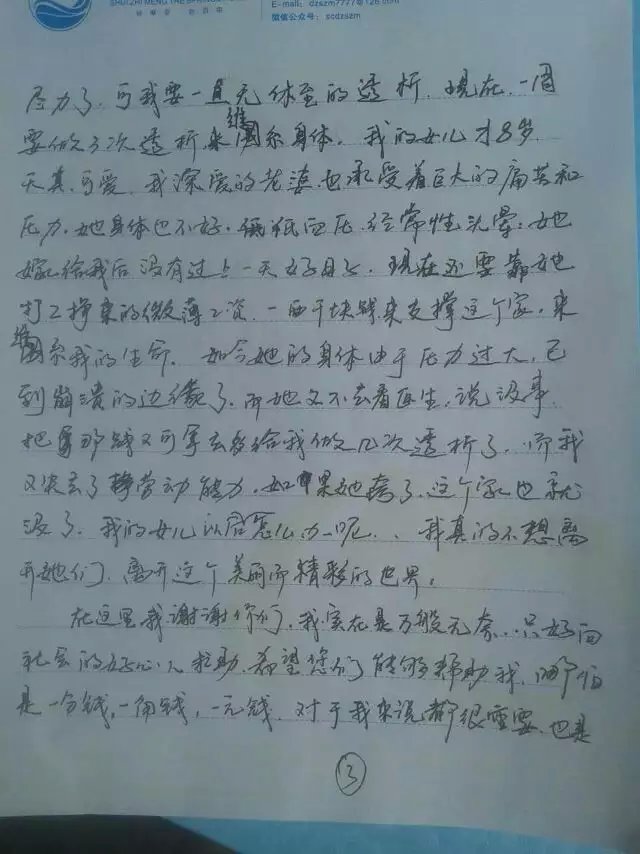 SHUIZHI MENG THE SPRING
E-mail: dzszm7777@126.com
微信公众号：scdzszm
尽力了，可我要一直无休至的透析，现在，一周
要做3次透析来维系身体，我的女儿才8岁
天真，可爱，我深爱的老婆也承受着巨大的痛苦和
压力，她身体也不好，低血压，经常性头晕；她
嫁给我后没有过上一天好日子，现在还要靠她
打工挣来的微薄工资，一两千块钱来支撑这个家，来
维系我的生命，如今她的身体由于压力过大，已
到崩溃的边缘了，而她又不去看医生，说没事，
把那钱又可拿去多给我做几次透析了，而我
又失去了劳动能力，如果她垮了，这个家也就
没了，我的女儿以后怎么办呢、、我真的不想离
开她们，离开这个美丽而精彩的世界。
在这里我谢谢你们，我实在是万般无奈，只好向
社会的好心人求助，希望您们能够帮助我，哪怕
是一分钱，一角钱，一元钱，对于我来说都很重要，也是
3